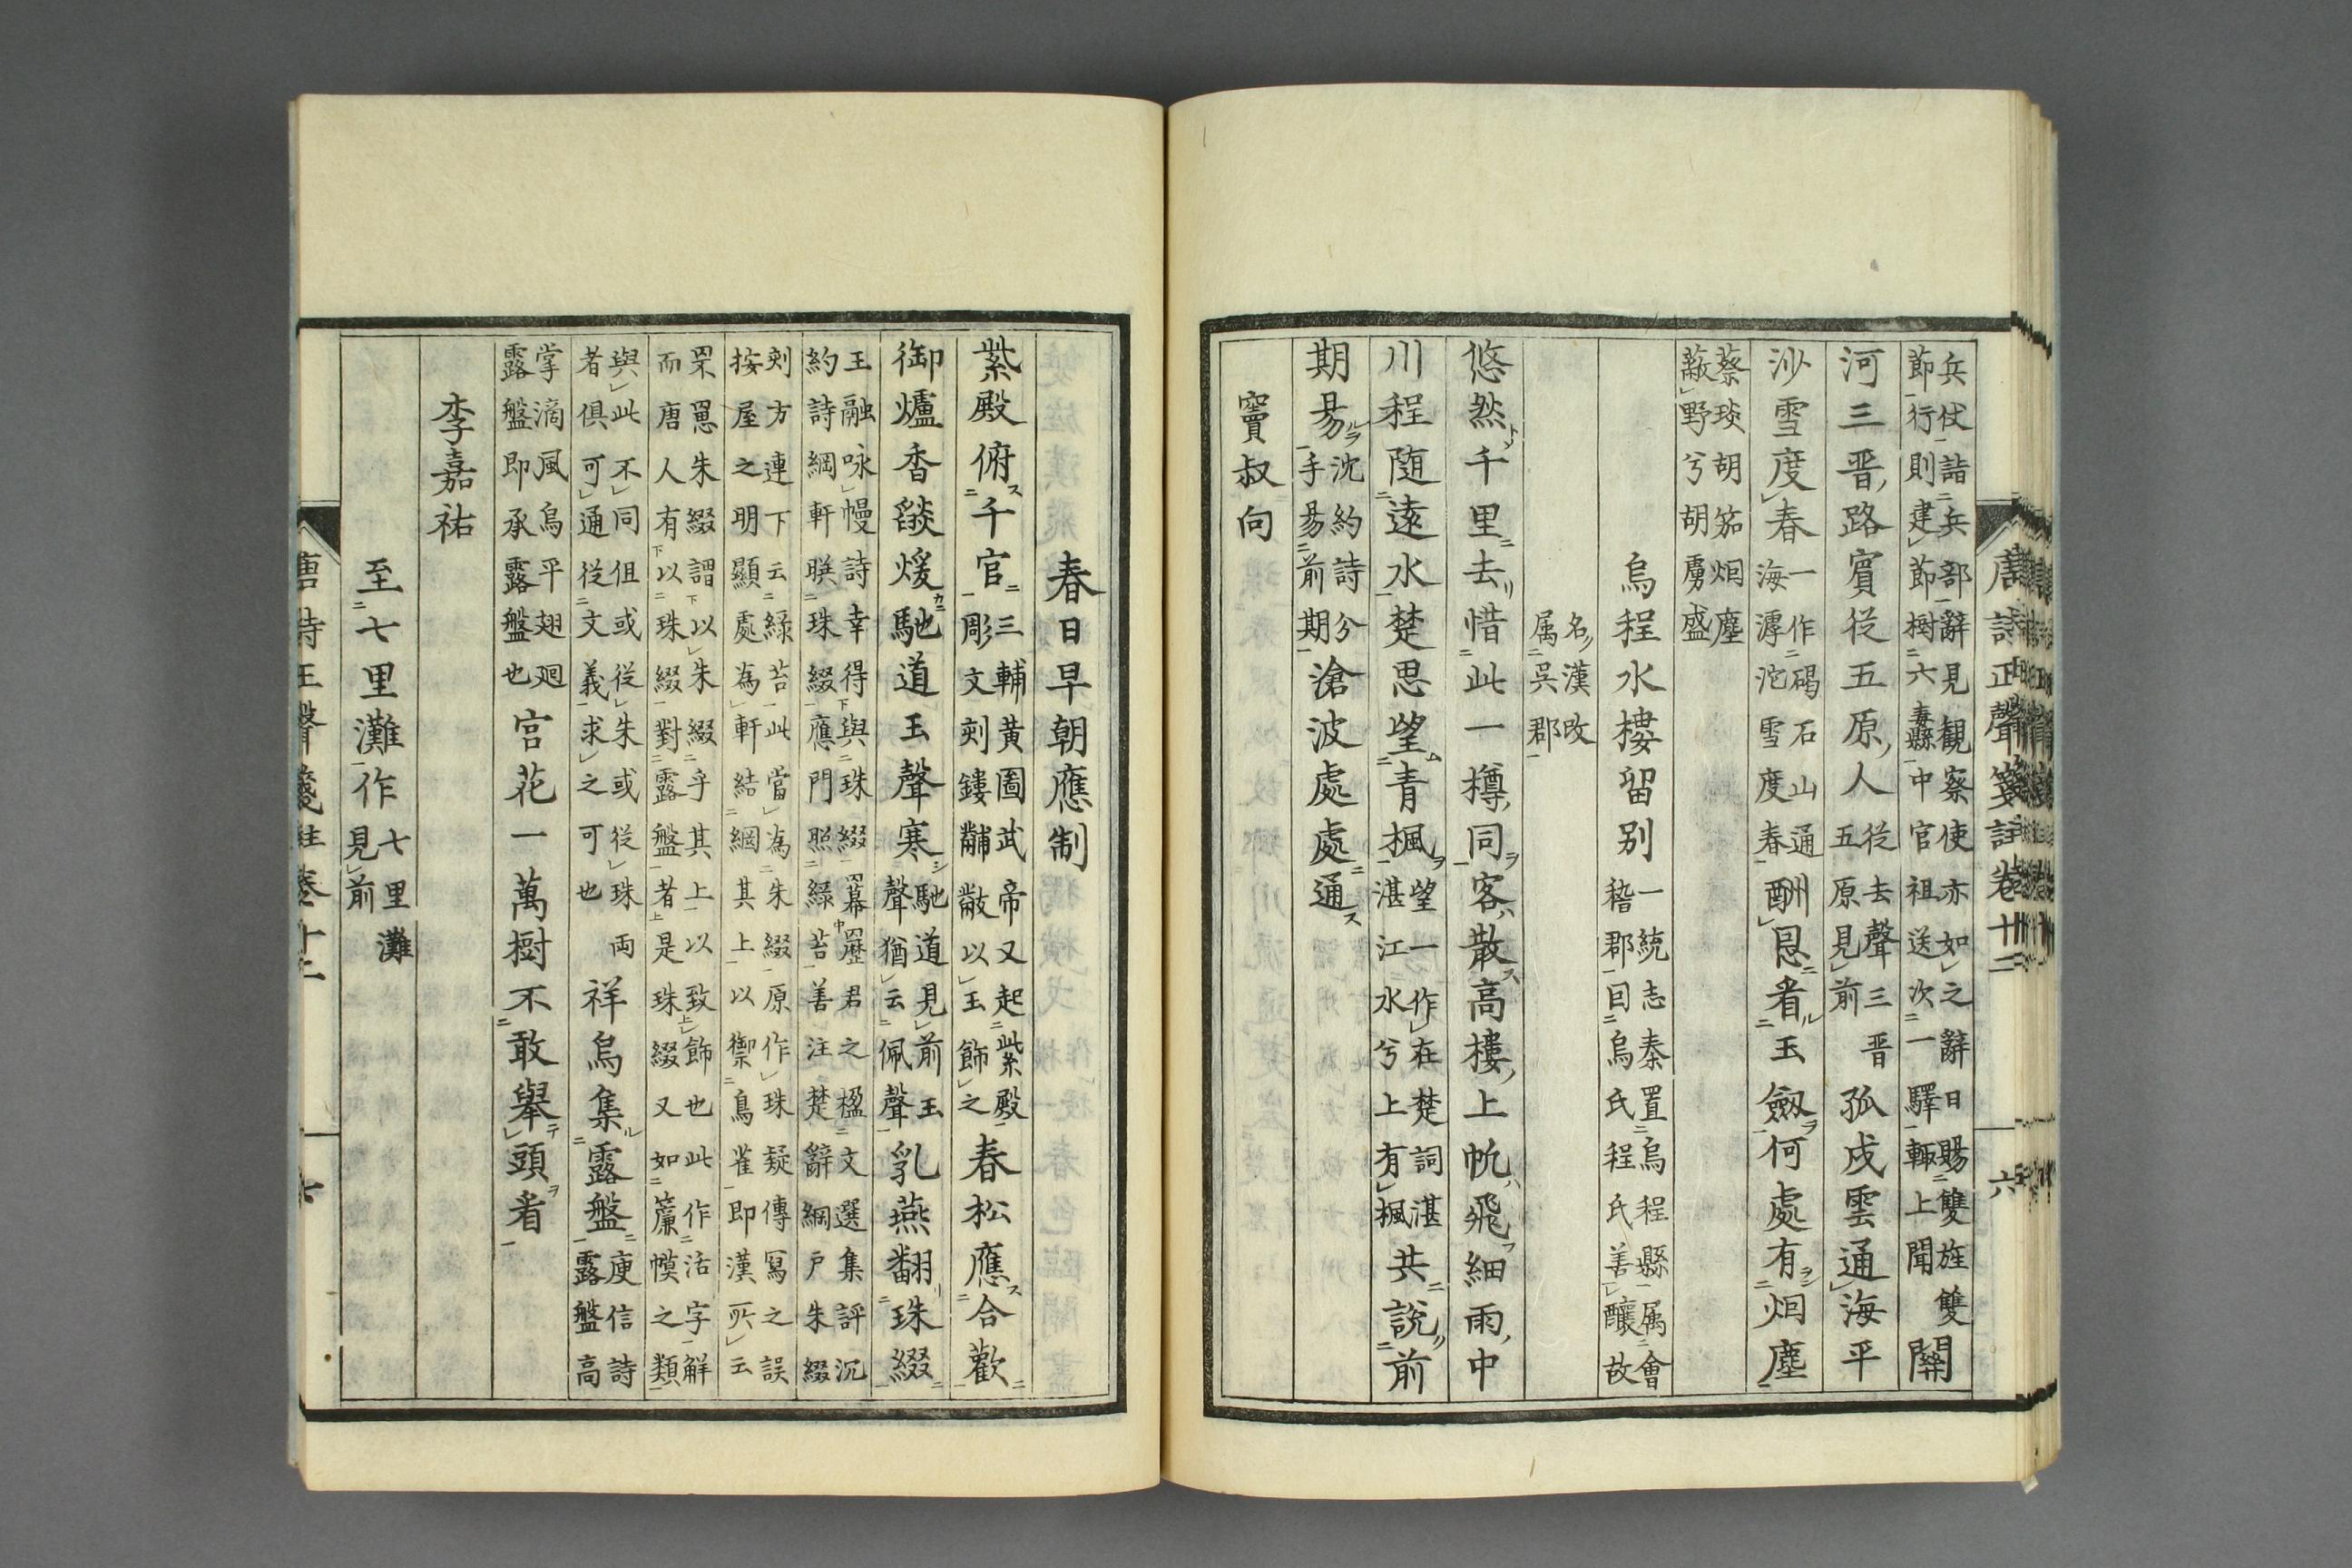 唐詩正聲箋註卷十二 六
兵仗詣兵部辭見觀察使亦如之辭日賜雙旌雙
節行則建節樹六纛縣中官祖送次一驛輙上聞 關
河三晋路賓從五原人 從去聲三晋 五原見前 孤戍雲通海平
沙雪度春 一作碣石山通 海滹沱雪度春 酬恩看玉劔何處有烟塵
蔡琰胡笳烟塵
蔽野兮胡虜盛
烏程水樓留别 一統志秦置烏程縣属會 稽郡因烏氏程氏善釀故
名漢改
属吳郡
悠然千里去惜此一樽同客散高樓上帆飛細雨中
川程随遠水楚思望青楓 望一作在楚詞湛 湛江水兮上有楓 共説前
期昜 沈約詩分 手昜前期 滄波處處通
竇叔向
春日早朝應制
紫殿俯千官 三輔黃圖武帝又起紫殿 彫文刻鏤黼黻以玉飾之 春松應合歡
御爐香燄煖馳道玉聲寒 馳道見前玉 聲猶云佩聲 乳燕翻珠綴
王融咏幔詩幸得與珠綴羃䍥君之楹文選集評沉
約詩綱軒暎珠綴應門照綠苔善注楚辭綱戶朱綴
刻方連下云綠苔此當為朱綴原作珠疑傳寫之誤
按屋之明顯處為軒結綱其上以禦鳥雀即漢所云
罘罳朱綴謂以朱綴乎其上以致飾也此作活字解
而唐人有以珠綴對露盤者是珠綴又如簾幙之類
與此不同但或從朱或從珠兩
者俱可通從文義求之可也 祥烏集露盤 庾信詩 露盤高
掌滴風烏平翅廻
露盤即承露盤也 宮花一萬樹不敢舉頭看
李嘉祐
至七里灘作 七里灘 見前
唐詩正聲箋註卷十二 七